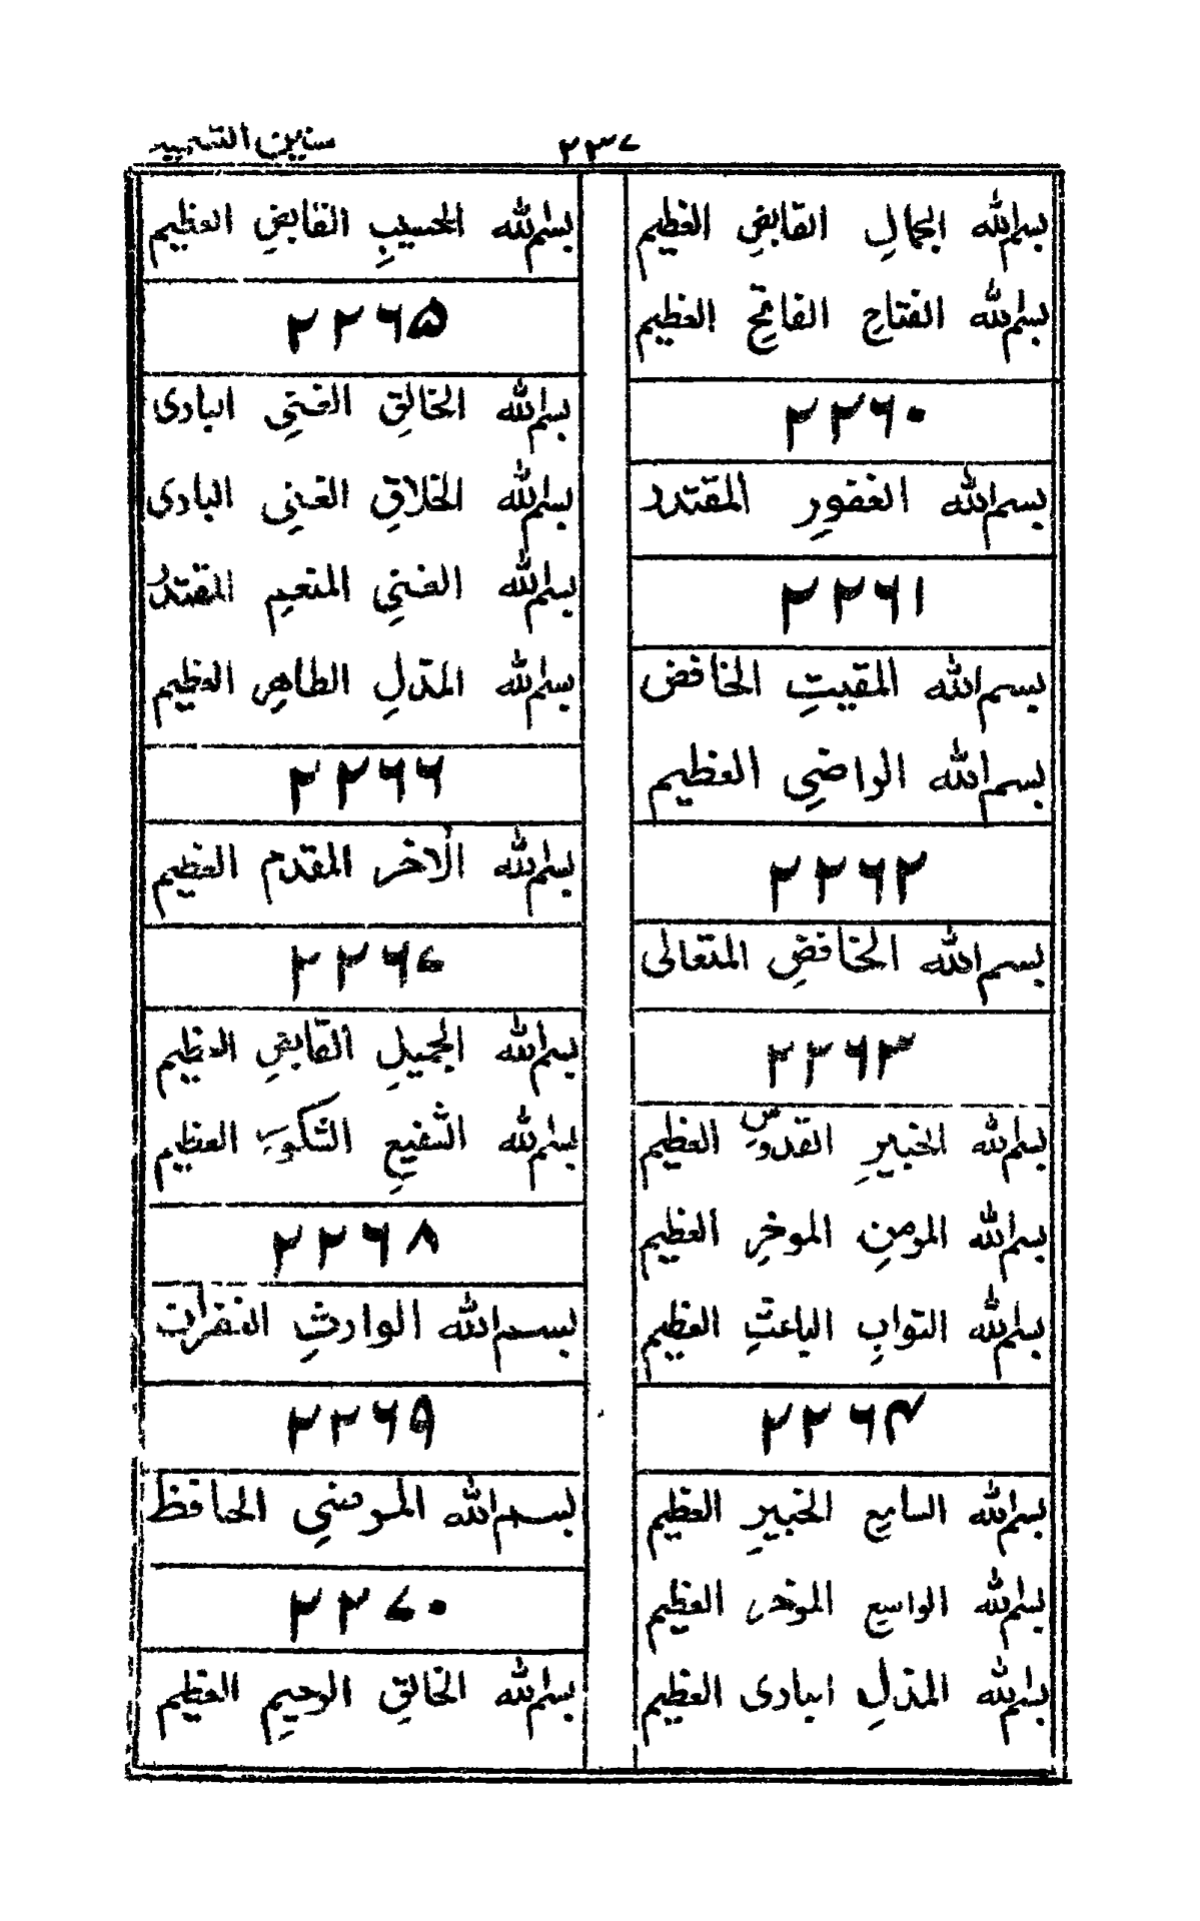 ٢٣٧
سنين
بسم الله الجمالِ القابضِ العظيم
بسم الله الفتاحِ الفاتحِ العظيم
٢٢٦٠
بسم الله الغفورِ المقتدر
٢٢٦١
بسم الله المقيتِ الخافض
بسم الله الواضيِ العظيم
٢٢٦٢
بسم الله الخافضِ المتعالى
٢٢٦٣
بسم الله الخبيرِ القدوسِ العظيم
بسم الله المومنِ الموخرِ العظيم
بسم الله التوابِ الباعثِ العظيم
٢٢٦۴
بسم الله السامعِ الخبيرِ العظيم
بسم الله الواسعِ الموخر العظيم
بسم الله المذلِ البادى العظيم
بسم الله الحسيبِ القابضِ العظيم
٢٢٦۵
بسم الله الخالقِ الغنيِ البادى
بسم الله الخلاقِ الغنيِ البادى
بسم الله الغنيِ المنعمِ المقتدر
بسم الله المذلِ الطاهرِ العظيم
٢٢٦٦
بسم الله الآخر المقدم العظيم
٢٢٦٧
بسم الله الجميلِ القابضِ العظيم
بسم الله الشفيعِ الشكور العظيم
٢٢٦٨
بسم الله الوارثِ
٢٢٦٩
بسم الله الحافظ
٢٢٧٠
بسم الله الخالقِ الرحيمِ العظيم